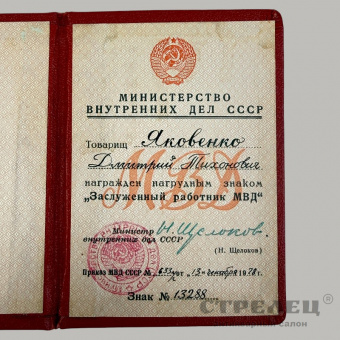 МИНИСТЕРСТВО
ВНУТРЕННИХ ДЕЛ СССР
Товарищ Яковенко
Дмитрий Тихонович
награжден нагрудным знаком
„Заслуженный работник МВД“
МВД
Министр
внутренних дел СССР
Н. Щелоков
(Н. Щелоков)
Приказ МВД СССР № от „13“ декабря 1978 г.
Знак № 13288
СТРЕЛЕЦ
салон